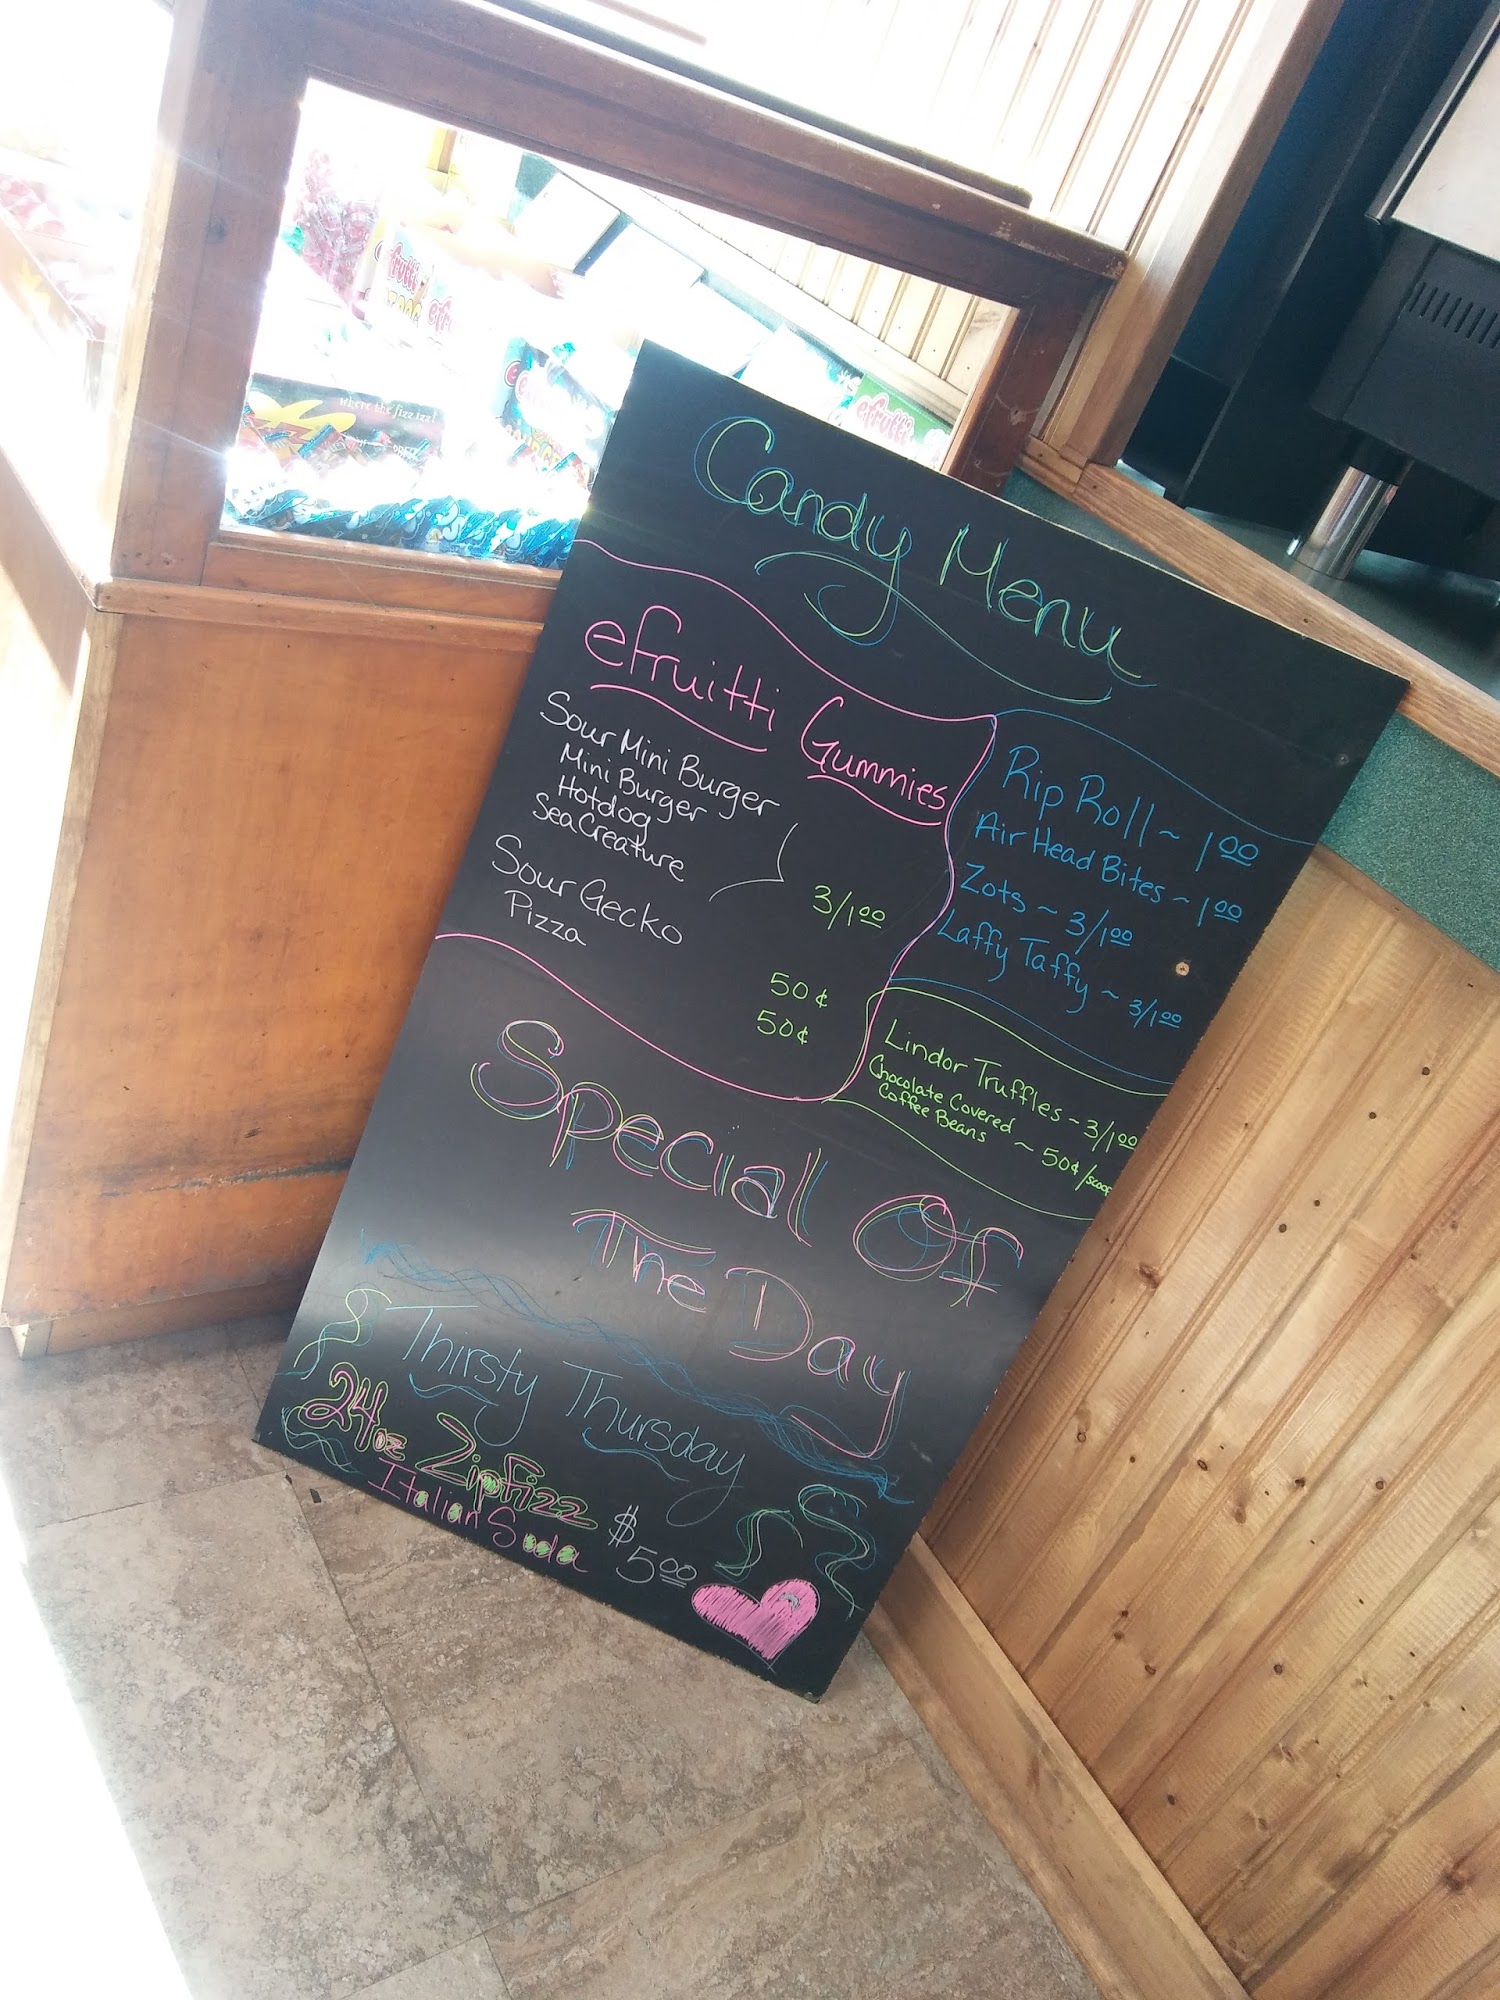 Candy Menu
efruitti Gummies
Sour Mini Burger
Mini Burger
Hotdog
Sea Creature
3/1.00
Sour Gecko 50¢
Pizza 50¢
Rip Roll ~ 1.00
Air Head Bites ~ 1.00
Zots ~ 3/1.00
Laffy Taffy ~ 3/1.00
Lindor Truffles ~ 3/1.00
Chocolate Covered
Coffee Beans ~ 50¢/scoop
Special Of
The Day
Thirsty Thursday
24oz Zipfizz
Italian Soda $5.00
efrutti
where the fizz izz!
efrutti